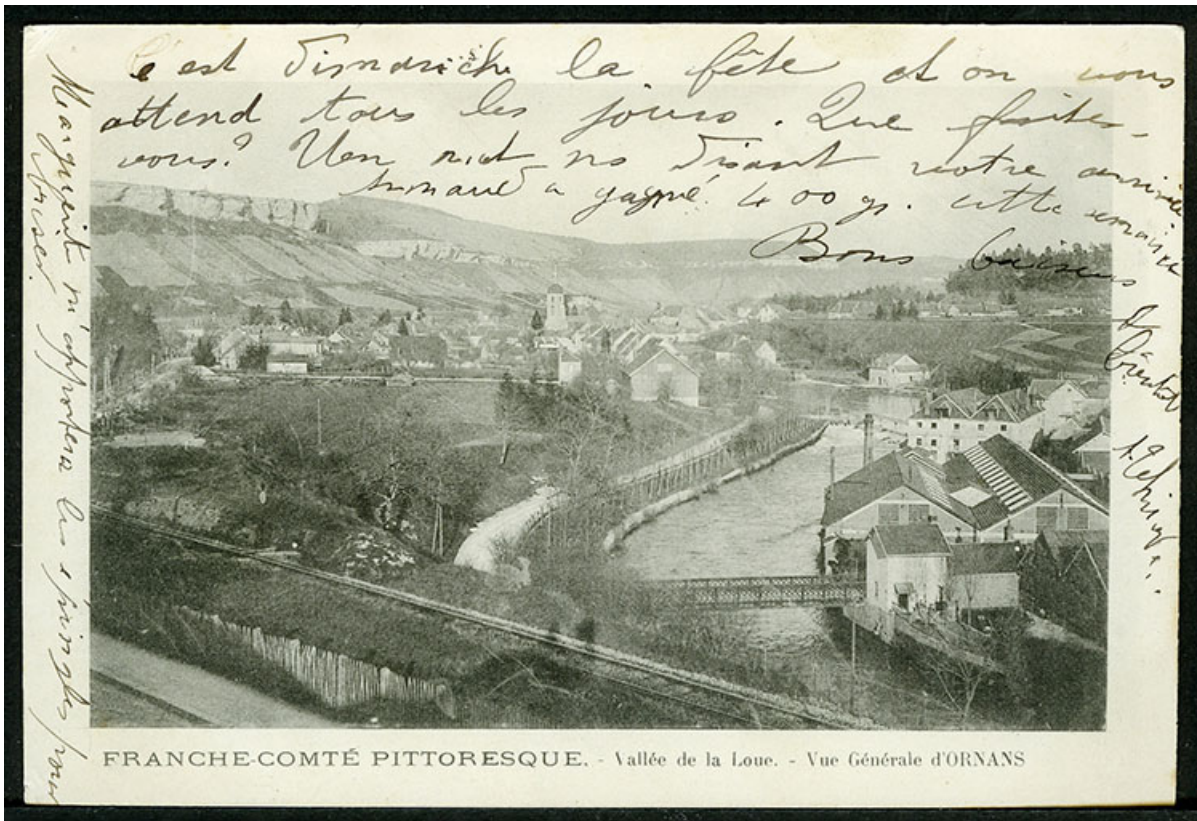 C'est Dimanche la fête et on vous
attend tous les jours. Que faites-
vous? Un mot ns disant votre arrivée
a gagné 400 gr. cette semaine
Bons baisers
Marguerite m'apportera les épingles pour
friser
FRANCHE-COMTÉ PITTORESQUE. - Vallée de la Loue. - Vue Générale d'ORNANS